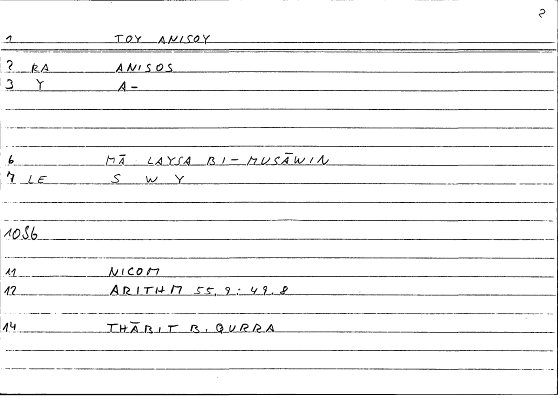 2
1 TOY ANISOY
2 RA ANISOS
3 Y A-
6 MĀ LAYSA BI-MUSĀWIN
7 LE S W Y
10S6
11 NICOM
12 ARITHM 55,9:49.8
14 THĀBIT B. QURRA